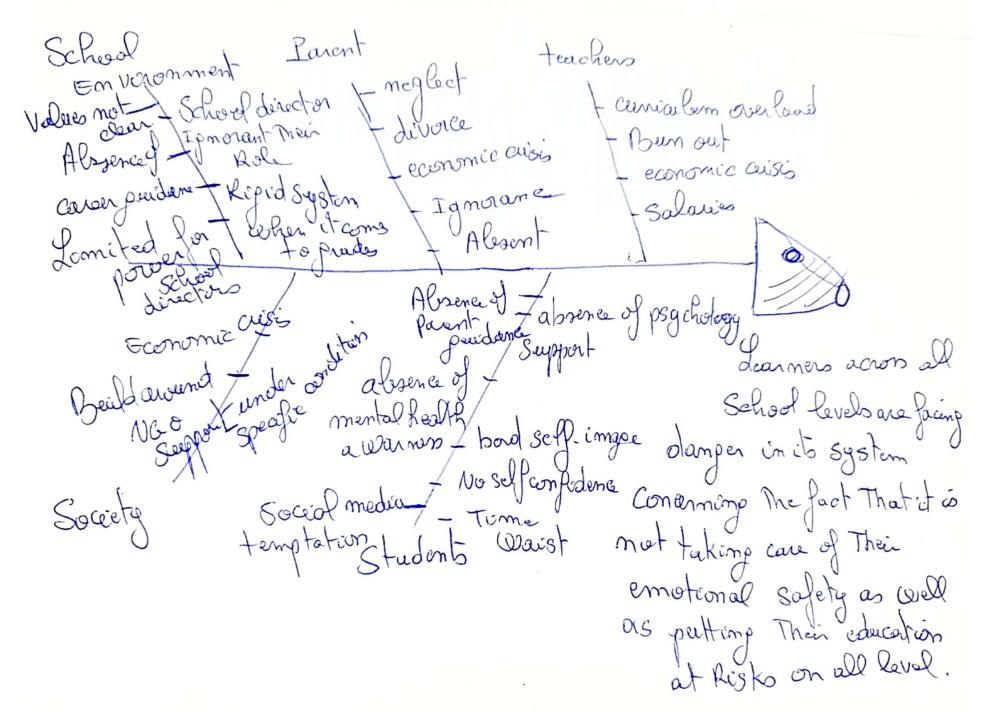 School
Environment
Values not
clear
Absence of
career guidane
Lomited
power for
School
directors
School director
Ignorant Their
Role
Rigid System
when it coms
to grades
Parent
neglect
divorce
economic crisis
Ignorane
Absent
teachers
curriculem overload
Burn out
economic crisis
Salaries
Economic crisis
Build around
NGO
Support under
specific condition
Society
Absence of
Parent
guidance
absence of psychology
Support
absence of
mental health
awarness
bard self-image
No self confidence
Social media
temptation
Time
Waist
Students
Learners across all
School levels are facing
danger in its system
Concerning The fact That it is
not taking care of Their
emotional safety as well
as putting Their education
at Risks on all level.